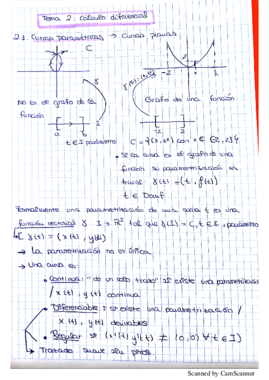 Tema 2: Cálculo diferencial
2.1 Curvas paramétricas → Curvas planas
C
γ
γ(t)=(t,t²)
-2
2
No es el grafo de una
función
Grafo de una función
a
b
I
t ∈ I parámetro
-2
2
C = {(x, x²) con x ∈ [-2,2]}
• Si la curva es el grafo de una
función su parametrización es
trivial: γ(t) = (t, f(t))
t ∈ Dom f
Formalmente una parametrización de una curva C es una
función vectorial γ: I → ℝ² tal que γ(I) = C, t ∈ I, parámetro
γ(t) = (x(t), y(t))
→ La parametrización no es única.
→ Una curva es:
• Continua: "de un solo trazo" si existe una parametrización
/ x(t), y(t) continua
• Diferenciable: si existe una parametrización /
x(t), y(t) derivables
• Regular: si (x'(t), y'(t)) ≠ (0,0) ∀ t ∈ I)
→ Trazado suave sin picos.
Scanned by CamScanner